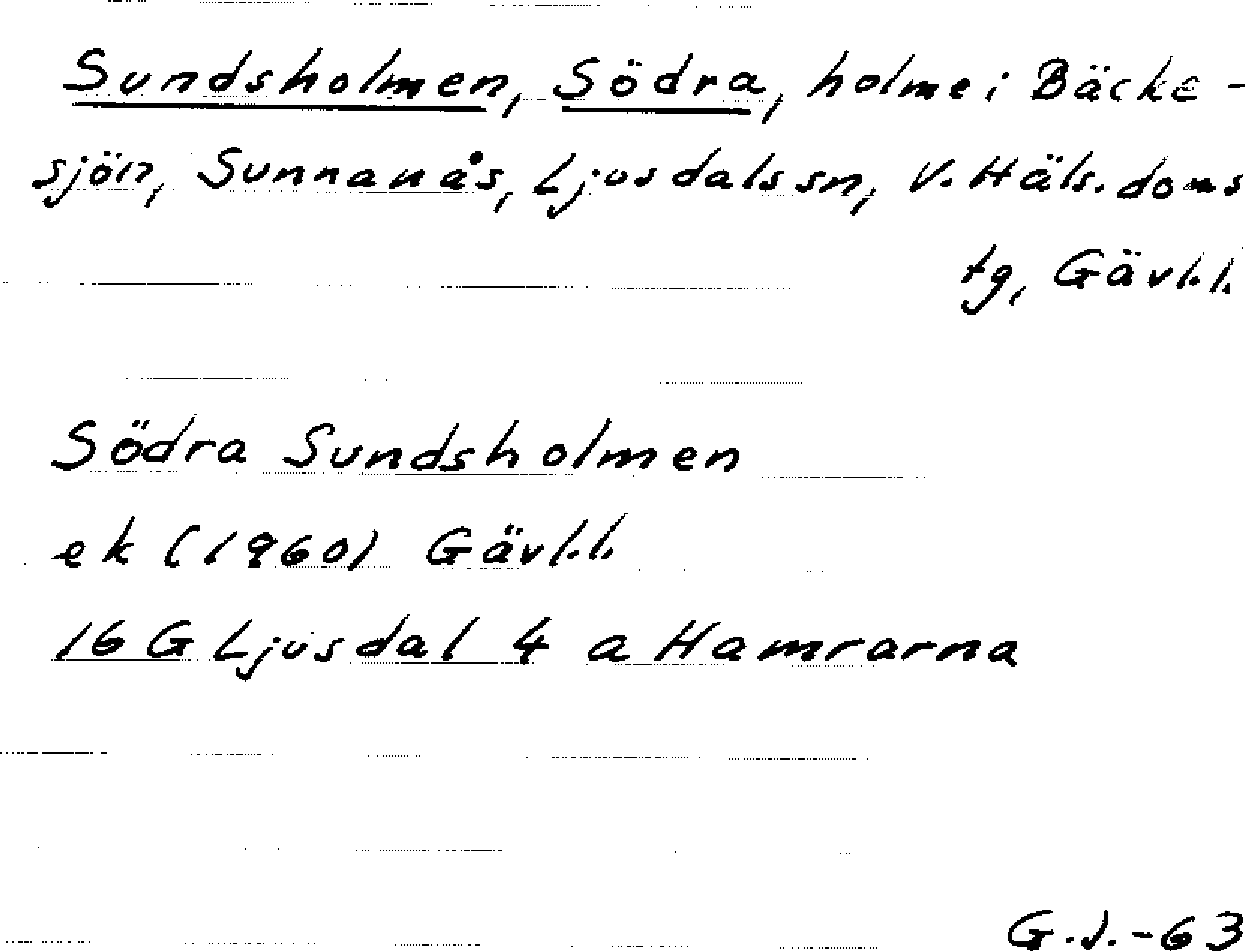 Sundsholmen, Södra, holme i Bäcke-
sjön, Sunnanås, Ljusdals sn, V. Häls. doms
tg, Gävl.l.
Södra Sundsholmen
ek (1960) Gävl.l.
16 G Ljusdal 4 a Hamrarna
G.J.-63